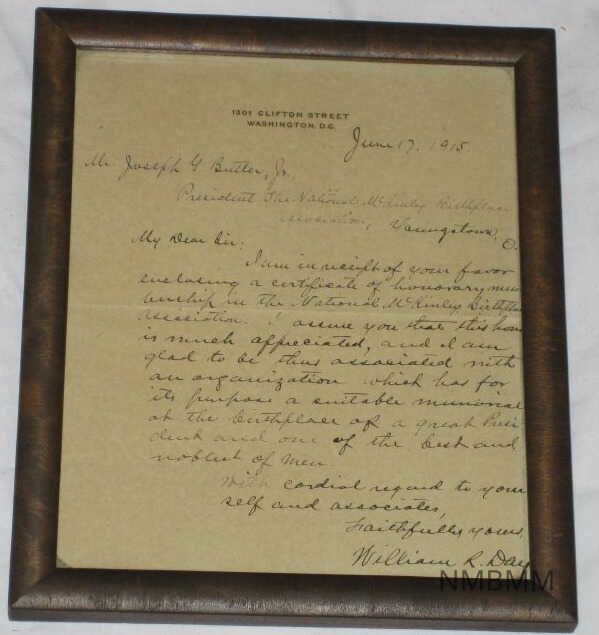 1301 CLIFTON STREET
WASHINGTON, D.C.
June 17, 1915.
Mr. Joseph G Butler, Jr,
President The National McKinley Birthplace
Association, Youngstown, O.
My Dear Sir:
I am in receipt of your favor
enclosing a certificate of honorary mem
bership in the National McKinley Birthplace
Association. I assure you that this honor
is much appreciated, and I am
glad to be thus associated with
an organization which has for
its purpose a suitable memorial
at the birthplace of a great Presi
dent and one of the best and
noblest of men
With cordial regard to your
self and associates,
Faithfully yours,
William R. Day
NMBMM